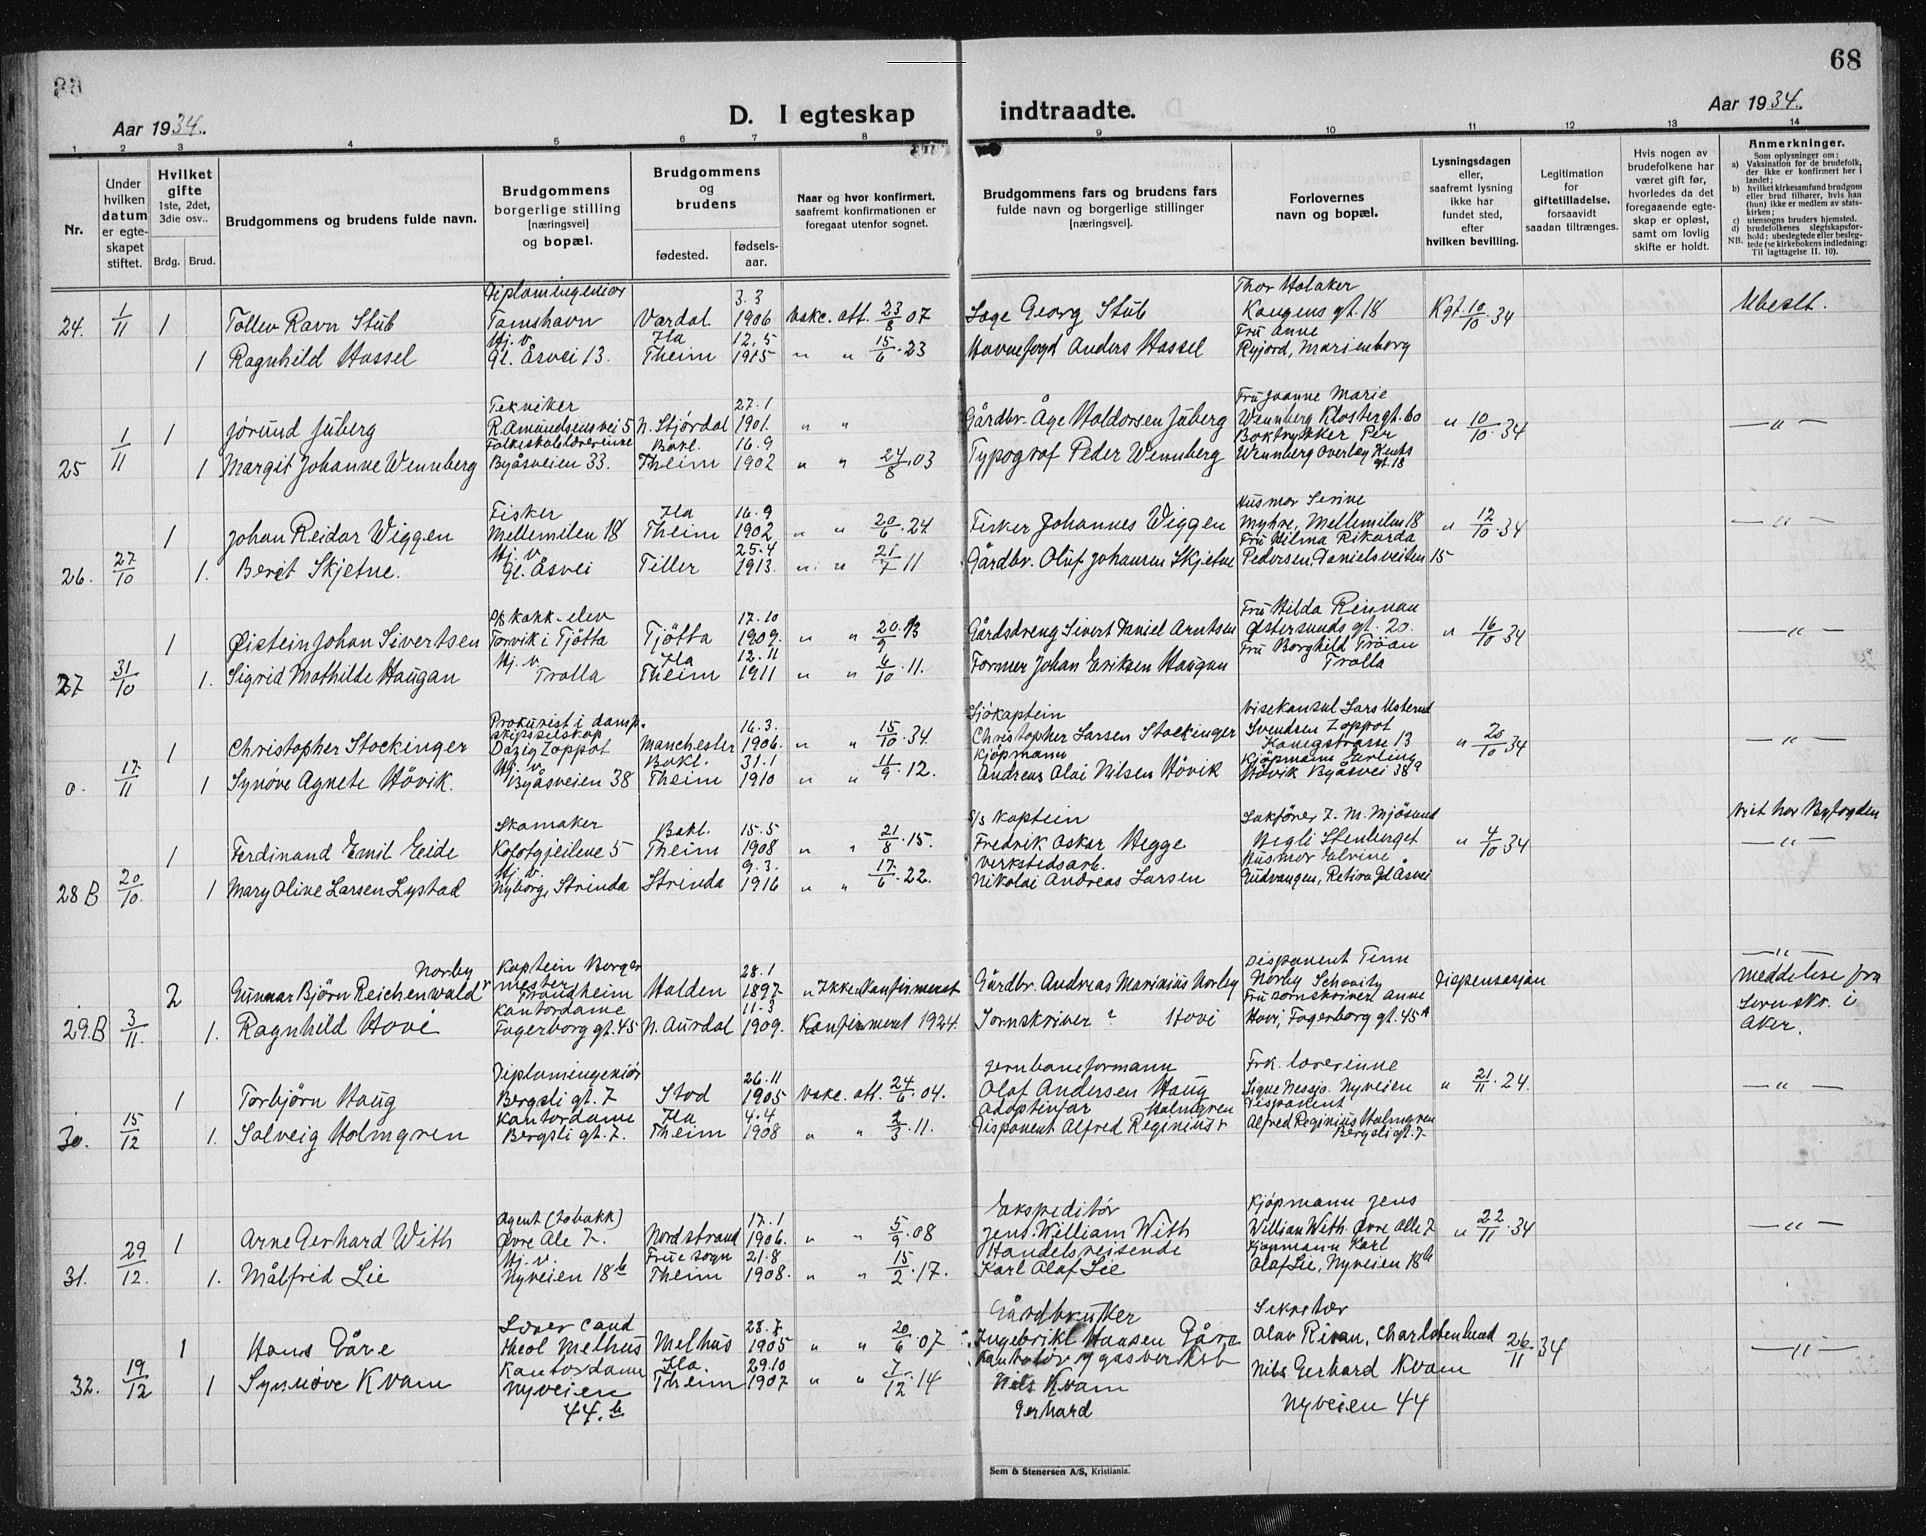 68
Aar 1934.
D. I egteskap indtraadte.
Aar 1934.
1 2 3 4 5 6 7 8 9 10 11 12 13 14
Nr.
Under hvilken datum er egteskapet stiftet.
Hvilket gifte 1ste, 2det, 3die osv..
Brdg. Brud.
Brudgommens og brudens fulde navn.
Brudgommens borgerlige stilling [næringsvei] og bopæl.
Brudgommens og brudens
fødested. fødsels-aar.
Naar og hvor konfirmert, saafremt konfirmationen er foregaat utenfor sognet.
Brudgommens fars og brudens fars fulde navn og borgerlige stillinger [næringsvei].
Forlovernes navn og bopæl.
Lysningsdagen eller, saafremt lysning ikke har fundet sted, efter hvilken bevilling.
Legitimation for giftetilladelse, forsaavidt saadan tiltrænges.
Hvis nogen av brudefolkene har været gift før, hvorledes da det foregaaende egteskap er opløst, samt om lovlig skifte er holdt.
Anmerkninger.
Som oplysninger om:
a) Vaksination for de brudefolk, der ikke er konfirmert her i landet;
b) hvilket kirkesamfund brudgom eller brud tilhører, hvis han (hun) ikke er medlem av statskirken;
c) utensogns bruders hjemsted.
d) brudefolkenes slegtskapsforhold; ubeslegtede eller beslegtede (se kirkebokens indledning:
NB. Til iagttagelse II. 10).
Diplomingeniør 3.3 Thor Holaker
24. 1/11 1 Tollev Ravn Stub Tamshavn Vardal 1906 vakc. att. 23/8 07 Georg Stub Kongens gt. 18 Kgt. 10/10 34 Ubeslt.
Hj. v. Ila 12.5 Fru Anne
1 Ragnhild Hassel Gl. Åsvei 13. Theim 1915 " " 15/6 23 Havnefogd Anders Hassel Ryjord, Marienborg
Tekniker 27.1 Fru Joanne Marie
1/11 1 Jørund Juberg R. Amundsensvei 5 N. Stjørdal 1901. " " Gårdbr. Åge Haldorsen Juberg Wennberg Klostergt. 60 " 10/10 34 — " —
Folkeskolelærerinne Bakl. 16.9 Boktrykker Per
25 1 Margit Johanne Wennberg Byåsveien 33. Theim 1902 " " 24/8 03 Typograf Peder Wennberg Wennberg gt. 18
Fisker Ila 16.9 Husmor Serine
1 Johan Reidar Wiggen Mellemilen 18 Theim 1902 " " 20/6 24 Fisker Johannes Wiggen Myhre, Mellemilen 18 " 12/10 34 — " —
Hj. v. 25.4 Fru Hilma Rikarda
26. 27/10 1. Beret Skjetne. Gl. Åsvei Tiller 1913. " " 21/7 11 Gårdbr. Oluf Johansen Skjetne Pedersen, Danielsveiten 15
D/S kokk-elev 17.10 Fru Hilda Rennan
1 Øistein Johan Sivertsen Torvik i Tjøtta Tjøtta 1909. " " 20/9 13 Gårdsdreng Sivert Daniel Arntsen Østersunds gt. 20. " 16/10 34 — " —
Hj. v. Ila 12.11 Fru Borghild Trøan
27 31/10 1. Sigrid Mathilde Haugan Trolla Theim 1911 " " 6/10 11. Former Johan Eriksen Haugan Trolla
Prokurist i dampskipsselskap 16.3. Sjøkaptein Visekonsul Lars Usterud
1 Christopher Stockinger Dazig Zoppot Manchester 1906. " " 15/10 34. Christopher Larsen Stockinger Svendsen Zoppot Konigstrasse 13 " 20/10 34 — " —
Hj. v. Bakl. 31.1 Kjøpmann Kjøpmann Erling
0. 17/11 1 Synøve Agnete Høvik. Byåsveien 38 Theim 1910 " " 11/9 12. Andreas Olai Nilsen Høvik Høvik Byåsvei 38a
Skomaker Bakl. 15.5 S/S kaptein Sakfører J. M. Mjøsund viet hos Byfogden
1 Ferdinand Emil Eide 5 Theim 1908 " " 21/8 15. Fredrik Oskar Hegge Stenberget " 4/10 34 — " —
Hj. v. 9.3. Verkstedsarb. Husmor Elvine
28 B 20/10. 1 Mary Olive Larsen Lystad Nyborg, Strinda Strinda 1916 " " 17/6 22. Nikolai Andreas Larsen Gudvangen, Retiro Gl. Åsvei
Norby Kaptein Borgermester 28.1 Disponent Finn — " —
2 Gunnar Bjørn Reichenwald Trondheim Halden 1897 " Ikke konfirmert Gårdbr. Andreas Marinius Norby Norby Dispensasjon Meddelese fra
Kontordame 11.3 Fru sornskriver Anne Sorenskr. i
29.B 3/11. 1. Ragnhild Hovi Fagerborg gt. 45 N. Aurdal 1909. Konfirmert 1924. Sornskriver ? Hovi Hovi, Fagerborg gt. 45A Aker.
Diplomingeniør 26.11 Jernbaneformann Frk. lærerinne
1 Torbjørn Haug Bergsli gt. 7 Stod 1905 vakc. att. 24/6 04. Olaf Andersen Haug Signe Nessjo. Nyveien " 21/11 24. — " —
Kontordame Ila 4.4 adoptivfar Holmgren Disponent
30. 15/12 1. Solveig Holmgren Bergsli gt. 7. Theim 1908 " " 2/3 11. Disponent Alfred Reginius Alfred Reginius Holmgren Bergsli gt. 7
Agent (tobakk) 17.1 Ekspeditør Kjøpmann Jens
1 Arne Gerhard With Øvre Ale 7. Nordstrand 1906. " " 5/9 08 Jens William With William With Øvre Alle 7 " 22/11 34 — " —
Hj. v. Frue sogn 21.8 Handelsreisende Kjøpmann Karl
31. 29/12. 1. Målfrid Lie Nyveien 18b Theim 1908. " " 15/2 17. Karl Olaf Lie Olaf Lie, Nyveien 18b
Lærer cand 28.7 Gårdbruker Sekretær
1 Hans Gåre theol Melhus Melhus 1905 " " 20/6 07 Ingebrikt Hansen Gåre Olav Rian, Charlottenlund 26/11 34 — " —
Kontordame Ila. 29.10 gasverket
32. 19/12 1 Synnøve Kvam Nyveien Theim 1907 " " 7/12 14 Nils Kvam Nils Gerhard Kvam
44.b Gerhard Nyveien 44
Sem & Stenersen A/S, Kristiania.